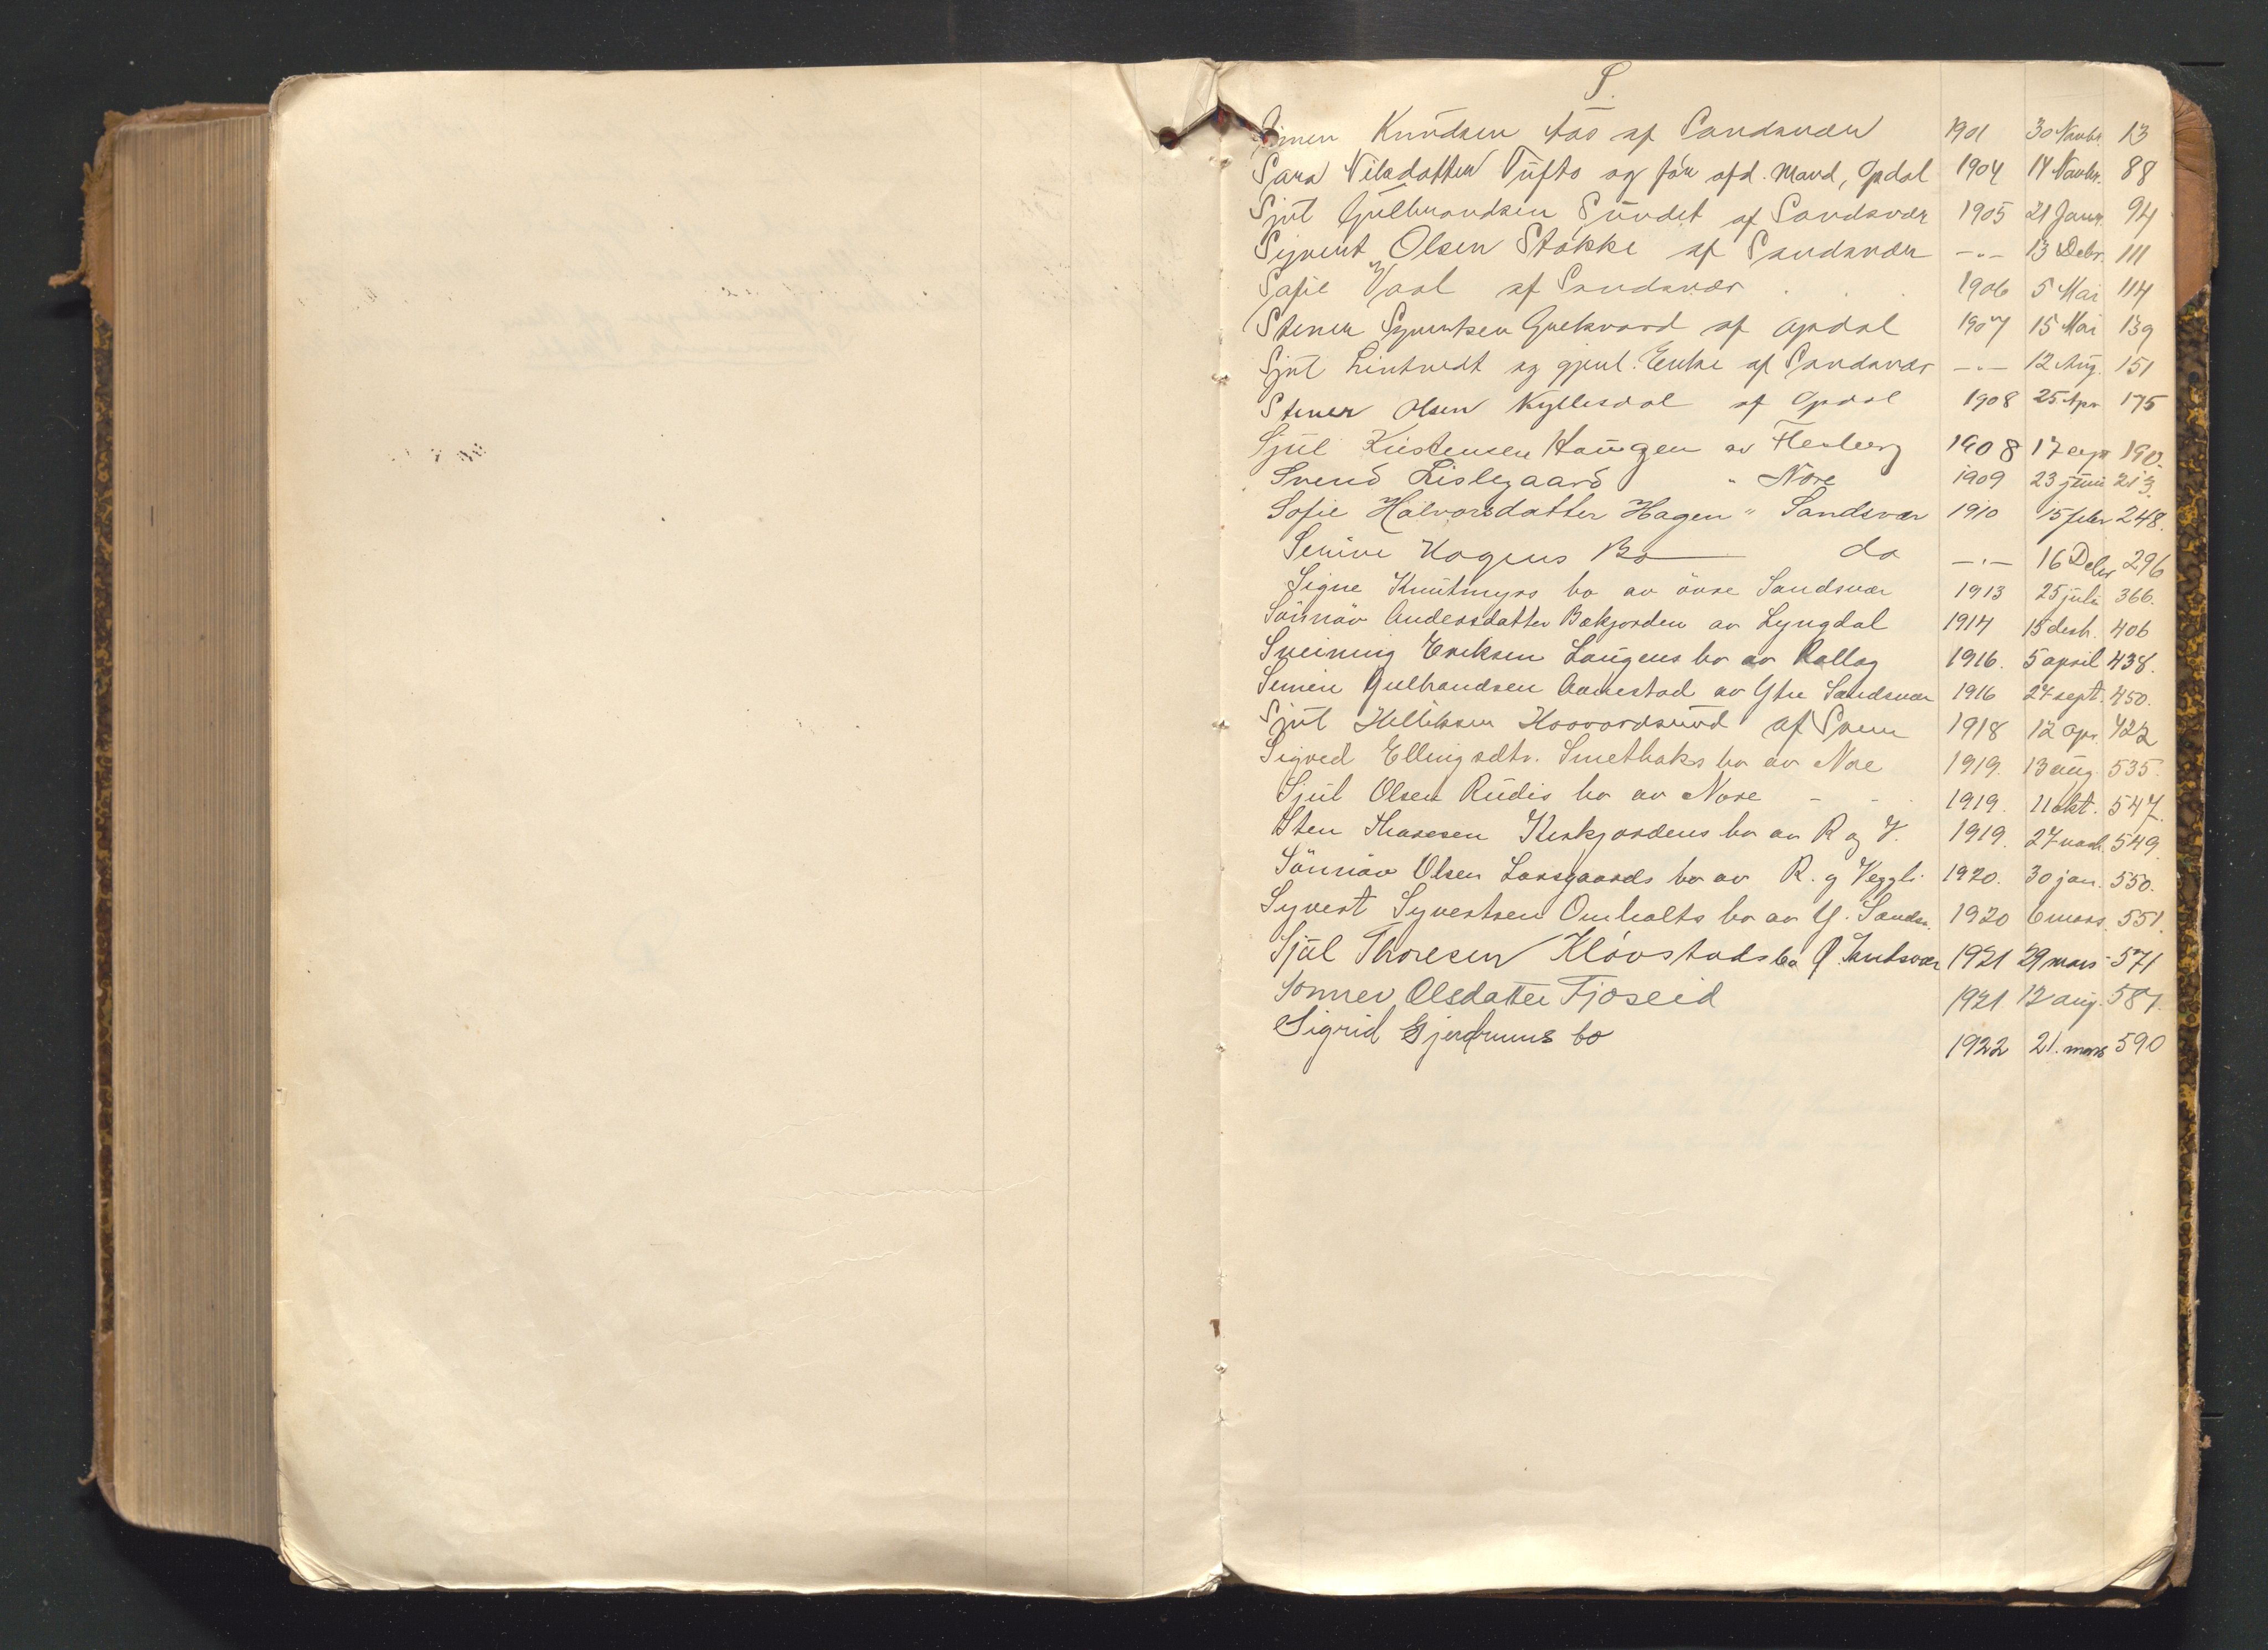 S.
Simen Knudsen Aas af Sandsvær 1901 30 Novbr. 13
Sara Nilsdatter Tufto og før afd. Mand, Opdal 1904 14 Novbr. 88
Sjul Gulbrandsen Sundet af Sandsvær 1905 21 Janr. 94
Syvert Olsen Stokke af Sandsvær —"— 13 Debr. 111
Sofie Vaal af Sandsvær . . . 1906 5 Mai 114
Stener Syvertsen af Opdal 1907 15 Mai 139
Sjul Lintvedt og gjenl. Enke af Sandsvær —"— 12 Aug. 151
Stener Olsen Kyllesdal af Opdal 1908 25 Apr 175
Sjul Kristensen Haugen av Flesberg 1908 17 sept 190.
Svend Lislegaard " Nore 1909 23 juni 213.
Sofie Halvorsdatter Hagen " Sandsvær 1910 15 febr 248.
Senine Hagens Bo do —"— 16 Debr 296
Signe Knutmyrs bo av övre Sandsvær 1913 25 juli 366.
Sönnöv Andersdatter Bækjorden av Lyngdal 1914 15 desb. 406
Sveinung Eriksen Laugens bo av Rollag 1916. 5 april 438.
Simen Gulbrandsen Aamestad av Ytre Sandsvær 1916 27 sept. 450.
Sjul Helliksen Hoovordsrud af Svene 1918 12 apr. 422
Sigved Ellingsdtr. Smethaks bo av Nore 1919. 13 aug. 535.
Sjul Olsen Rudis bo av Nore - - . 1919. 11 okt. 547.
Sten Thoresen Kirkjordens bo av R og V. 1919. 27 novb. 549.
Sönnöv Olsen Larsgaards bo av R. og Veggli. 1920. 30 jan. 550.
Syvert Syvertsen Omholts bo av Y. Sandsv. 1920 6 mars. 551.
Sjul Thoresen Kløvstads bo Ø. Sandsvær 1921 29 mars 571
Sønnev Olsdatter Fjøseid 1921. 12 aug. 587.
Sigrid Gjerdrums bo 1922 21. mars 590